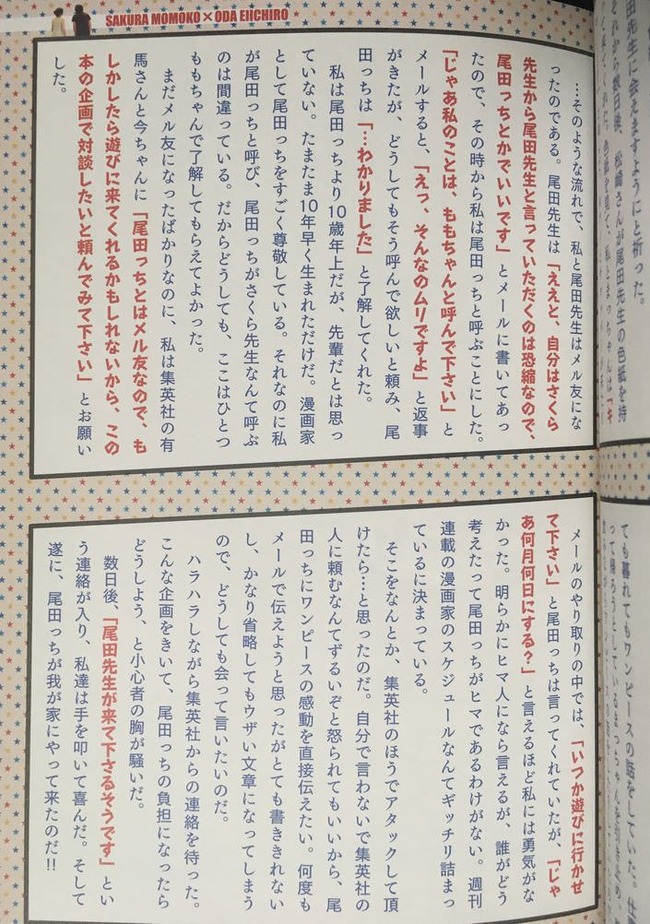 SAKURA MOMOKO×ODA EIICHIRO
…そのような流れで、私と尾田先生はメル友にな
ったのである。尾田先生は「ええと、自分はさくら
先生から尾田先生と言っていただくのは恐縮なので、
尾田っちとかでいいです」とメールに書いてあっ
たので、その時から私は尾田っちと呼ぶことにした。
「じゃあ私のことは、ももちゃんと呼んで下さい」と
メールすると、「えっ、そんなのムリですよ」と返事
がきたが、どうしてもそう呼んで欲しいと頼み、尾
田っちは「…わかりました」と了解してくれた。
私は尾田っちより10歳年上だが、先輩だとは思っ
ていない。たまたま10年早く生まれただけだ。漫画家
として尾田っちをすごく尊敬している。それなのに私
が尾田っちと呼び、尾田っちがさくら先生なんて呼ぶ
のは間違っている。だからどうしても、ここはひとつ
ももちゃんで了解してもらえてよかった。
まだメル友になったばかりなのに、私は集英社の有
馬さんと今ちゃんに「尾田っちとはメル友なので、も
しかしたら遊びに来てくれるかもしれないから、この
本の企画で対談したいと頼んでみて下さい」とお願い
した。
メールのやり取りの中では、「いつか遊びに行かせ
て下さい」と尾田っちは言ってくれていたが、「じゃ
あ何月何日にする?」と言えるほど私には勇気がな
かった。明らかにヒマ人になら言えるが、誰がどう
考えたって尾田っちがヒマであるわけがない。週刊
連載の漫画家のスケジュールなんてギッチリ詰まっ
ているに決まっている。
そこをなんとか、集英社のほうでアタックして頂
けたら…と思ったのだ。自分で言わないで集英社の
人に頼むなんてずるいぞと怒られてもいいから、尾
田っちにワンピースの感動を直接伝えたい。何度も
メールで伝えようと思ったがとても書ききれない
し、かなり省略してもウザい文章になってしまう
ので、どうしても会って言いたいのだ。
ハラハラしながら集英社からの連絡を待った。
こんな企画をきいて、尾田っちの負担になったら
どうしよう、と小心者の胸が騒いだ。
数日後、「尾田先生が来て下さるそうです」とい
う連絡が入り、私達は手を叩いて喜んだ。そして
遂に、尾田っちが我が家にやって来たのだ!!
田先生に会えますようにと祈った。
それから数日後、松崎さんが尾田先生の色紙を持
ても暮れてもワンピースの話をしていた。仕